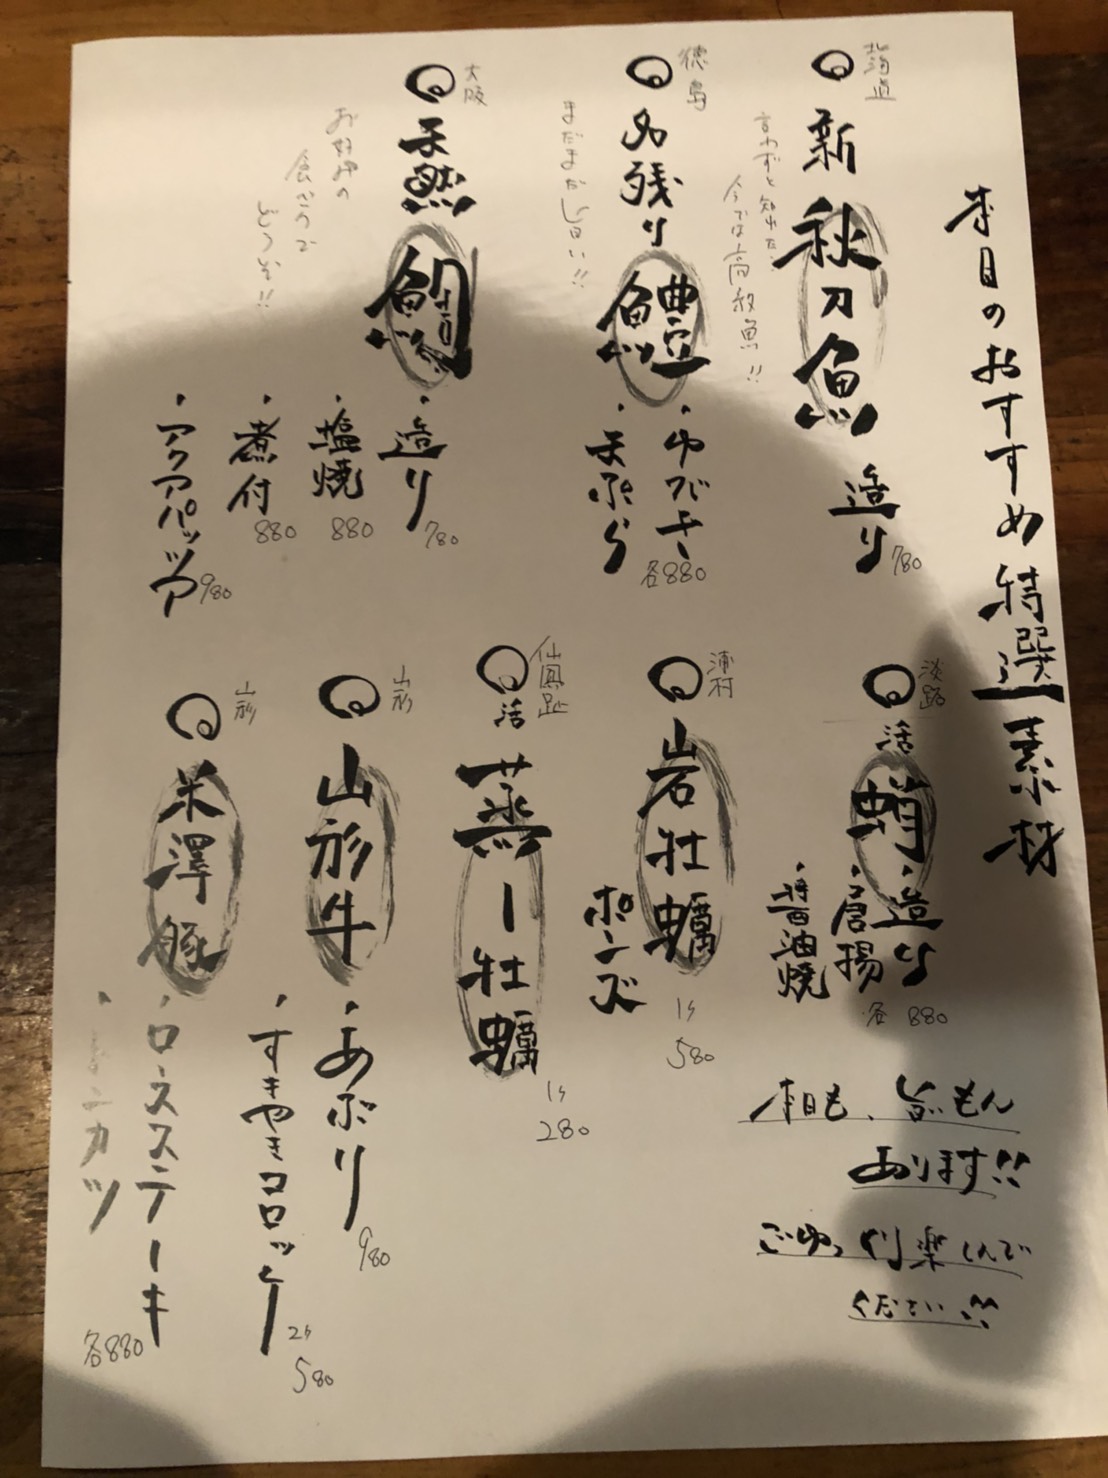 本日のおすすめ特選素材
北海道
新秋刀魚
言わずと知れた
今では高級魚!!
造り
780
徳島
名残り鱧
まだまだ旨い!!
・ゆびき
・天ぷら
各880
大阪
天然鯛
お好みの
食べ方で
どうぞ!!
・造り
780
・塩焼
880
・煮付
880
・アクアパッツア
980
淡路
活蛸
・造り
・唐揚
・醤油焼
各880
浦村
岩牡蠣
ポンズ
1ケ
580
仙鳳趾
活蒸し牡蠣
1ケ
280
山形
山形牛
・あぶり
980
・すきやきコロッケ
2ケ
580
山形
米澤豚
・ロースステーキ
カツ
各880
本日も、旨いもん
あります!!
ごゆっくり楽しんで
ください!!